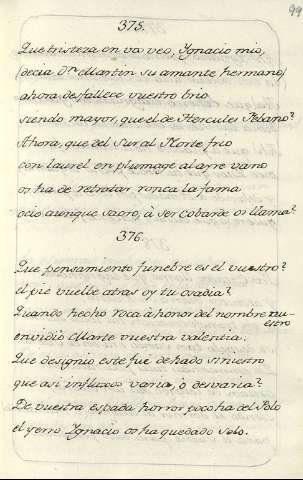 99
375.
Que tristeza en va veo, Ygnacio mio,
(decia Dn Martin su amante hermano)
ahora desfallece vuestro brio
siendo mayor, que el de Hercules Tebano?
Ahora, que del Sur al Norte frio
con laurel en plumage al ayre vano
os ha de retratar ronca la fama
ocio aunque sacro, à ser cobarde os llama?
376.
Que pensamiento funebre es el vuestro?
el pie vuelbe atras oy tu osadia?
Quando hecho roca à honor del nombre vu-
estro
envidiò Marte vuestra valentia.
Que designio este fue de hado siniestro
que asi influxos varia, ò desvaria?
De vuestra espada horror poco ha del Polo
el yerro Ygnacio os ha quedado solo.